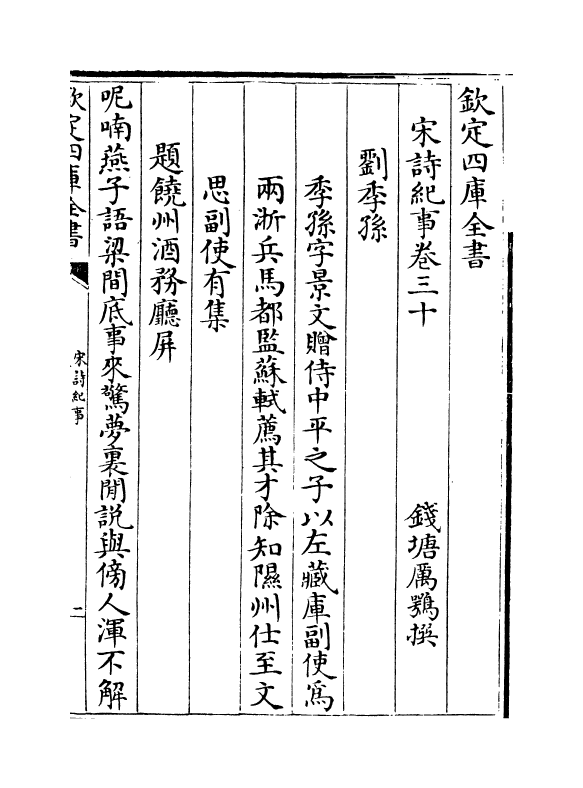 欽定四庫全書
宋詩紀事卷三十 錢塘厲鶚撰
劉季孫
季孫字景文贈侍中平之子以左藏庫副使為
兩浙兵馬都監蘇軾薦其才除知隰州仕至文
思副使有集
題饒州酒務廳屏
呢喃燕子語梁間底事來驚夢裏閒説與傍人渾不解
欽定四庫全書
宋詩紀事
二